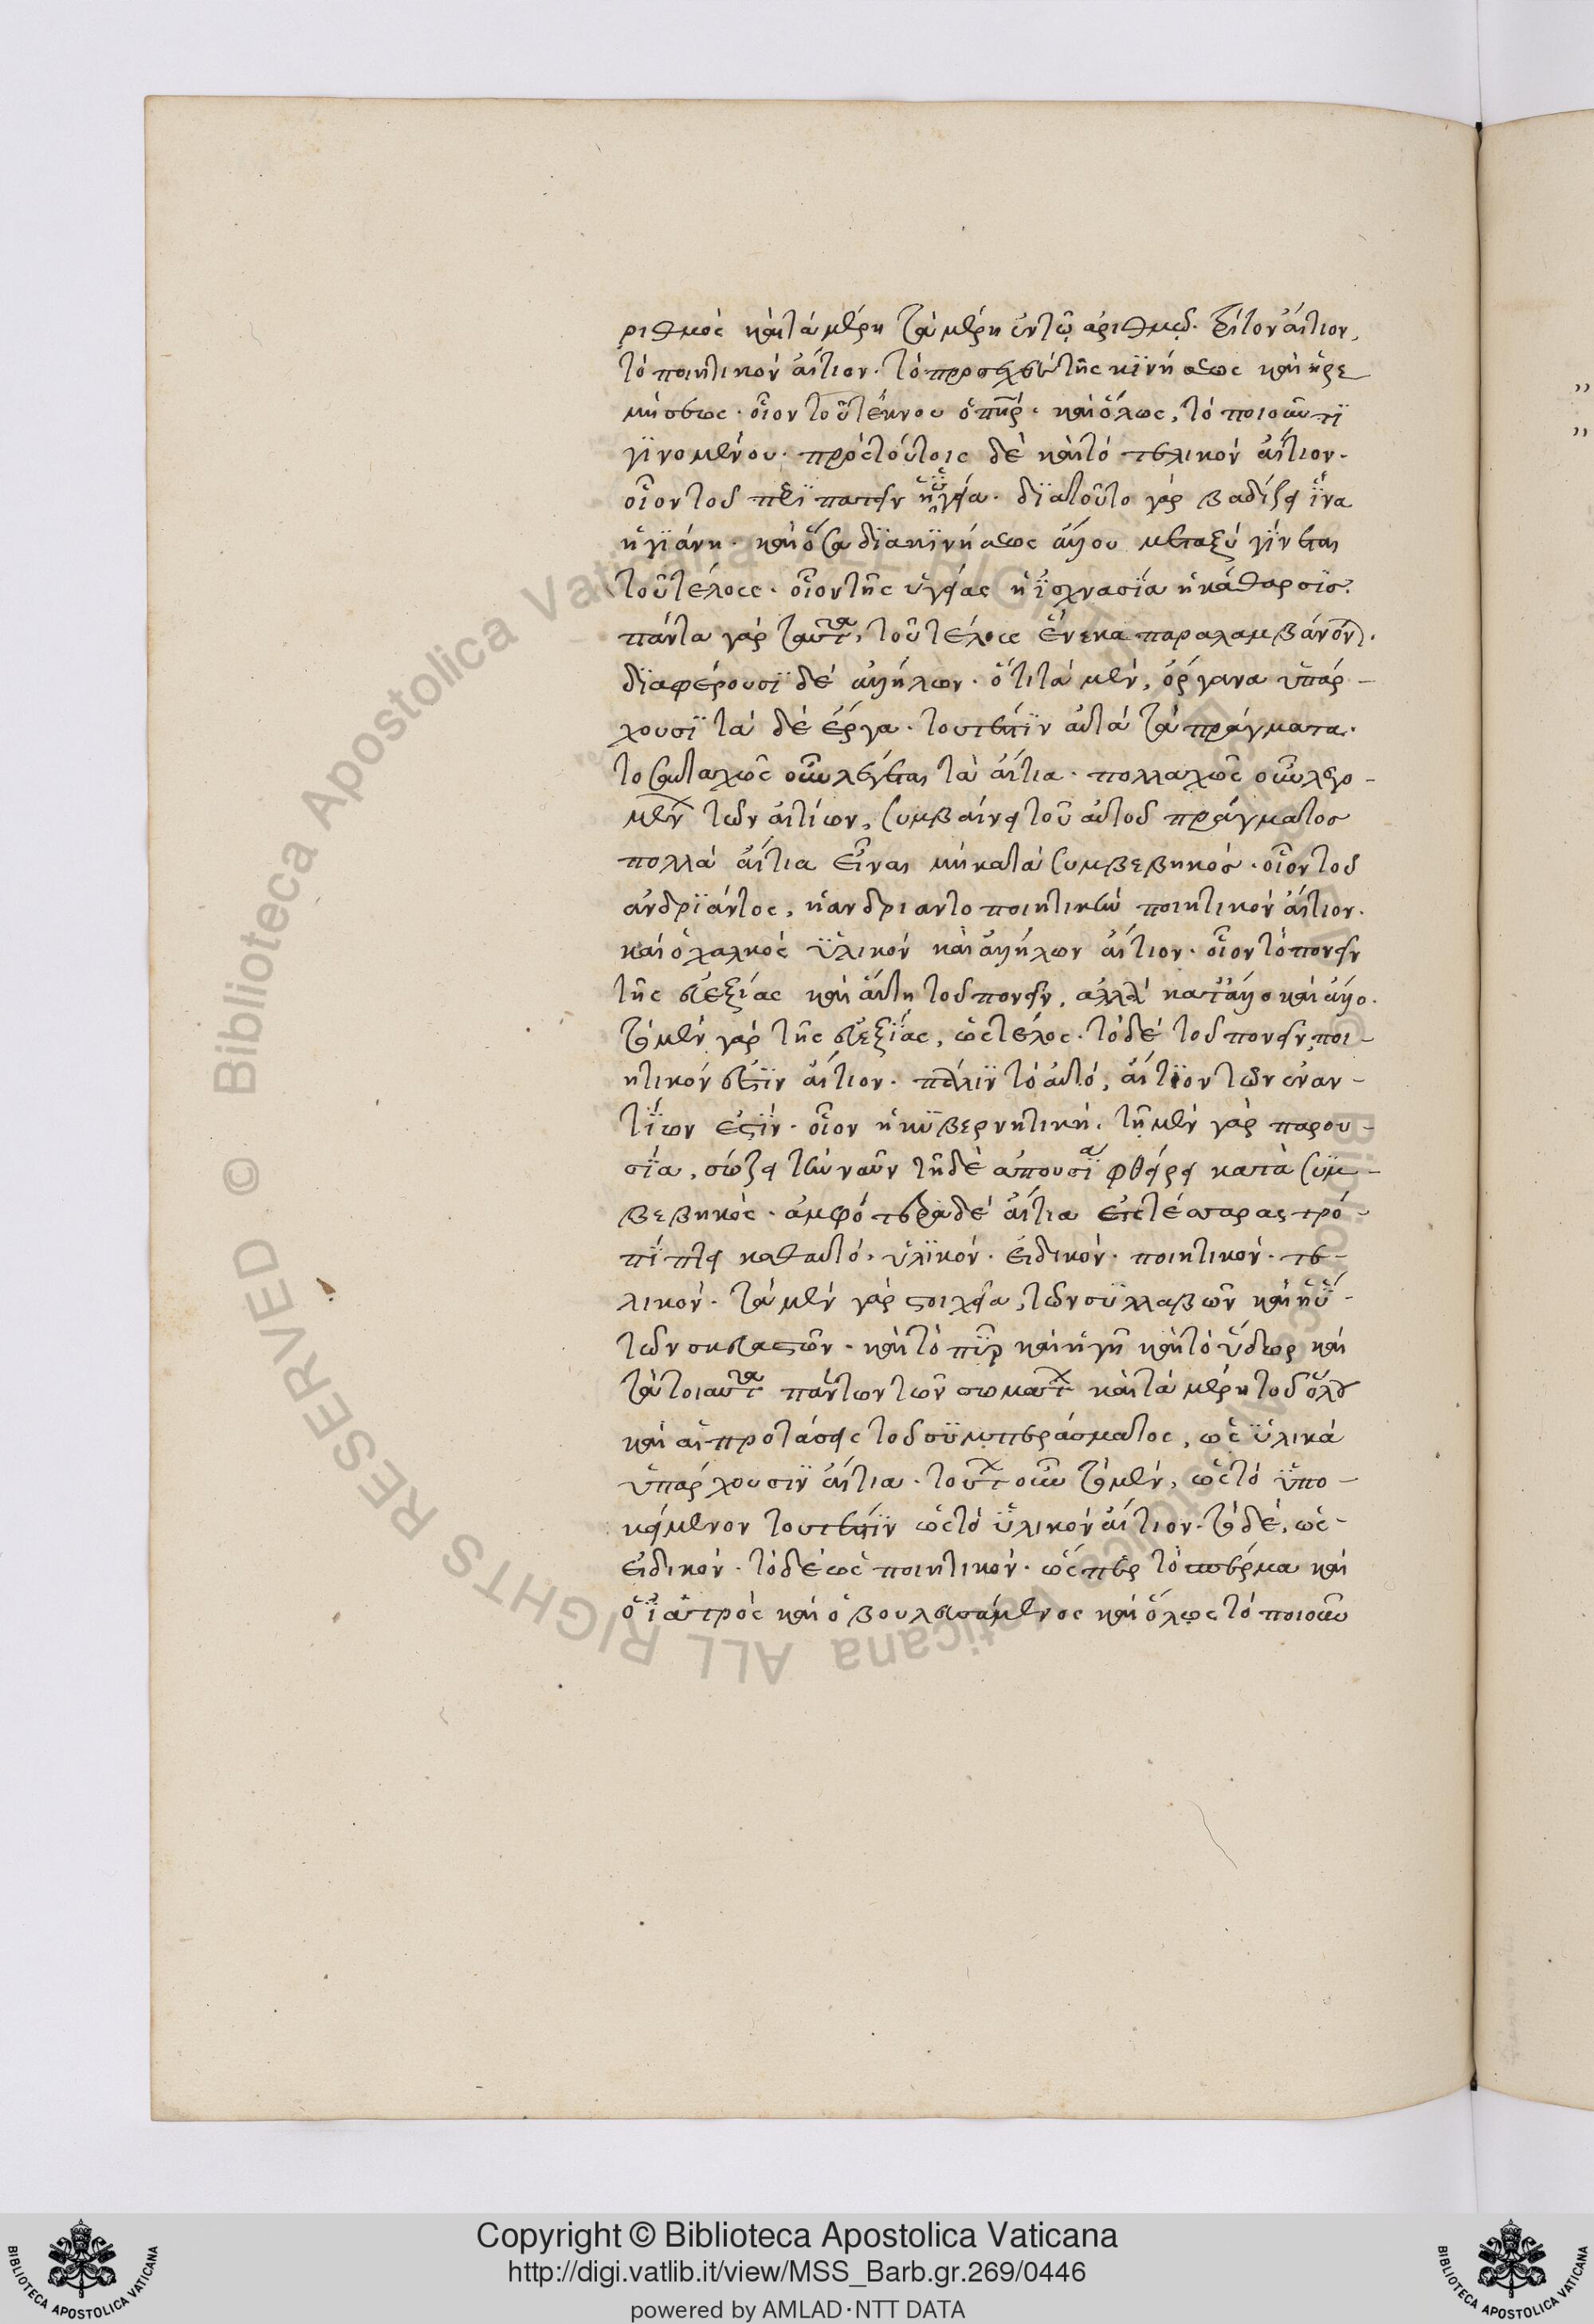 ριθμὸς καὶ τὰ μέρη τὰ μέρη ἐν τῷ ἀριθμῷ. τρίτον αἴτιον,
τὸ ποιητικὸν αἴτιον. τὸ προσεχὲς τῆς κϊνήσεως καὶ ἠρε
μήσεως. οἷον τοῦ τέκνου ὁ πηρ. καὶ ὅλως, τὸ ποιοῦν τϊ
γϊνομένου. πρὸς τούτοις δὲ καὶ τὸ τελικὸν αἴτιον.
οἷον τοῦ περϊπατεῖν ἡ ὑγεία. δϊατοῦτο γὰρ βαδίζει ἵνα
ὑγϊάνη. καὶ ὅσα δϊα κϊνήσεως ἄλλου μεταξὺ γϊνεται
τοῦ τέλους. οἷον τῆς ὑγείας ἡ ϊσχνασϊα ἡ κάθαρσϊσ.
πάντα γὰρ ταῦτα, τοῦ τέλους ἕνεκα παραλαμβάνοντ.
δϊαφέρουσϊ δὲ ἀλλήλων. ὅτι τὰ μὲν, ὄργανα ὑπάρ-
χουσϊ τὰ δὲ ἔργα. τουτέστϊν αὐτὰ τὰ πράγματα.
τοσαυταχῶς οὖν λέγεται τὰ αἴτια. πολλαχῶς οὖν λεγο-
μεν τῶν αἰτίων, συμβαίνει τοῦ αὐτοῦ πράγματοσ
πολλὰ αἴτια εἶναι μὴ κατὰ συμβεβηκόσ. οἷον τοῦ
ἀνδρϊάντος, ἡ ανδριαντοποιητικὴ ποιητικὸν αἴτιον.
καὶ ὁ χαλκὸς ὑλικὸν καὶ ἀλλήλων αἴτιον. οἷον τὸ πονεῖν
τῆς εὐεξίας καὶ αὕτη τοῦ πονεῖν, ἀλλὰ κατ ἄλλο καὶ ἄλλο.
τὸ μὲν γὰρ τῆς εὐεξϊας, ὡς τέλος. τὸ δὲ τοῦ πονεῖν, ποι-
ητικόν ἐστϊν αἴτιον. πάλϊν τὸ αὐτό, αἴτϊον τῶν ἐναν-
τϊων ἐστϊν. οἷον ἡ κϋβερνητικὴ. τῆ μὲν γὰρ παρου-
σϊα, σώζει τὴν ναῦν τῆ δὲ ἀπουσϊα φθείρει κατὰ συμ-
βεβηκὸς. ἀμφότερα δὲ αἴτια εἰς τέσσαρας τρό-
πϊπτει καθαυτό. υλϊκόν. εἰδικόν. ποιητικόν. τε-
λικόν. τὰ μὲν γὰρ στοιχεῖα, τῶν σϋλλαβῶν καὶ ἡ ὕ-
τῶν σκευαστῶν. καὶ τὸ πῦρ καὶ ἡ γῆ καὶ τὸ ὕδωρ καὶ
τὰ τοιαῦτα πάντων τῶν σωματ καὶ τὰ μέρη τοῦ ὅλου
καὶ αἱ προτάσεις τοῦ σϋμπεράσματος, ὡς ὑλικὰ
ὑπάρχουσϊν αἴτια. τουτ οὖν τὸ μὲν, ὡς τὸ ὑπο-
κείμενον τουτέστϊν ὡς τὸ ὑλικὸν αἴτιον. τὸ δὲ, ὡς-
εἰδικόν. τὸ δὲ ὡς ποιητικόν. ὥς περ τὸ σπέρμα καὶ
ὁ ϊατρὸς καὶ ὁ βουλευσάμενος καὶ ὅλως τὸ ποιοῦν
Copyright © Biblioteca Apostolica Vaticana
http://digi.vatlib.it/view/MSS_Barb.gr.269/0446
powered by AMLAD·NTT DATA